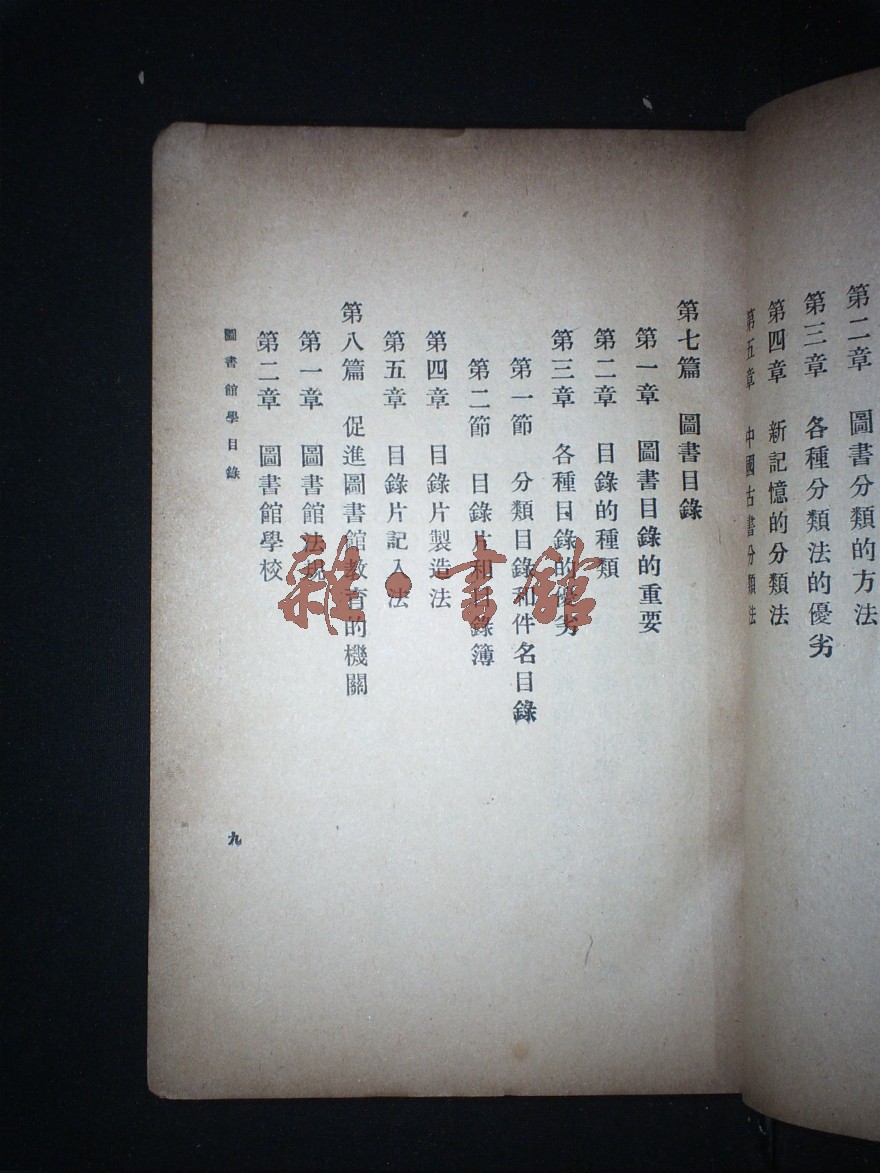 第二章　圖書分類的方法
第三章　各種分類法的優劣
第四章　新記憶的分類法
第五章　中國古書分類法
第七篇　圖書目錄
第一章　圖書目錄的重要
第二章　目錄的種類
第三章　各種目錄的優劣
第一節　分類目錄和件名目錄
第二節　目錄片和目錄簿
第四章　目錄片製造法
第五章　目錄片記入法
第八篇　促進圖書館教育的機關
第一章　圖書館法規
第二章　圖書館學校
圖書館學目錄
九
雜·書館